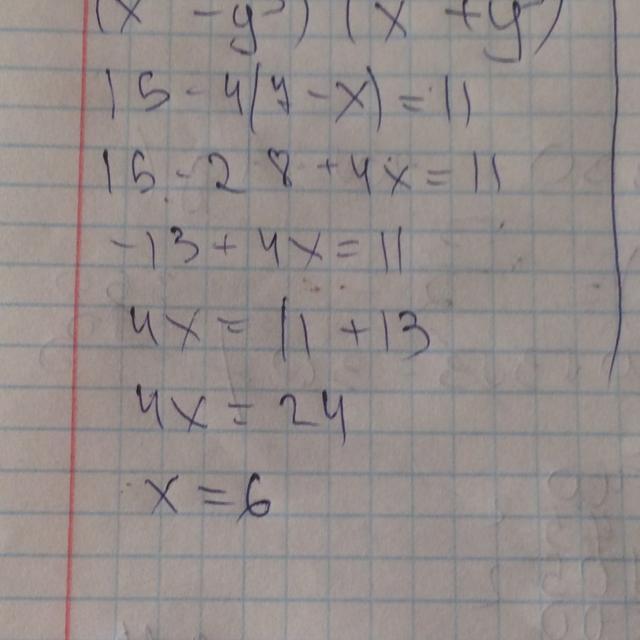 (x - y) (x + y)
15 - 4(7 - x) = 11
15 - 28 + 4x = 11
-13 + 4x = 11
4x = 11 + 13
4x = 24
x = 6